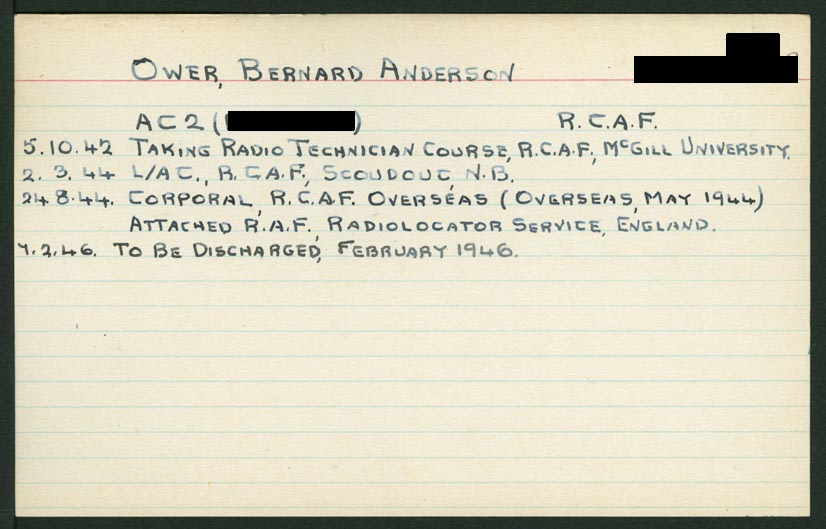 OWER, BERNARD ANDERSON
AC2 ( ) R.C.A.F.
5.10.42 TAKING RADIO TECHNICIAN COURSE, R.C.A.F., McGILL UNIVERSITY.
2. 3. 44 L/AC., R.C.A.F., SCOUDOUC, N.B.
24.8.44. CORPORAL, R.C.A.F. OVERSEAS (OVERSEAS, MAY 1944)
ATTACHED R.A.F., RADIOLOCATOR SERVICE, ENGLAND.
7.2.46. TO BE DISCHARGED, FEBRUARY 1946.